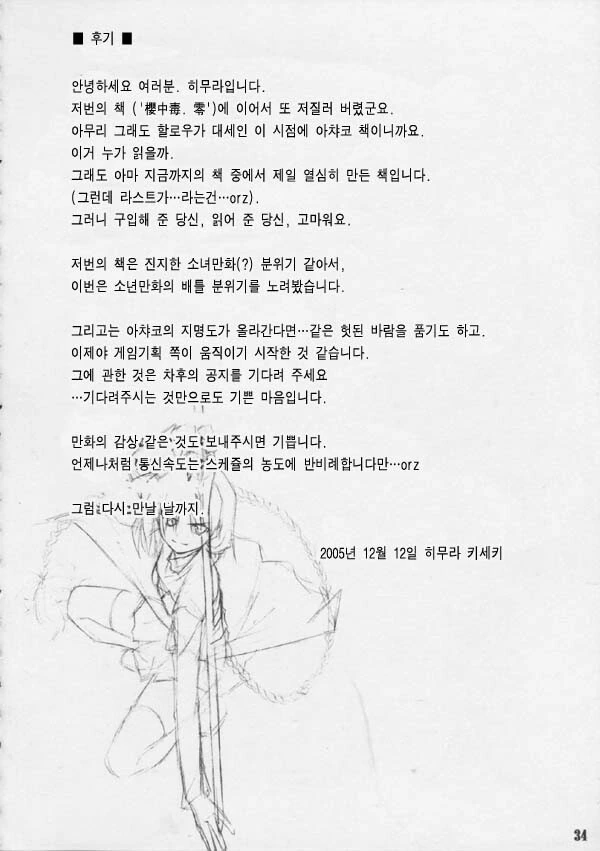 ■ 후기 ■
안녕하세요 여러분. 히무라입니다.
저번의 책 ('櫻中毒. 零')에 이어서 또 저질러 버렸군요.
아무리 그래도 할로우가 대세인 이 시점에 아챠코 책이니까요.
이거 누가 읽을까.
그래도 아마 지금까지의 책 중에서 제일 열심히 만든 책입니다.
(그런데 라스트가…라는건…orz).
그러니 구입해 준 당신, 읽어 준 당신, 고마워요.
저번의 책은 진지한 소녀만화(?) 분위기 같아서,
이번은 소년만화의 배틀 분위기를 노려봤습니다.
그리고는 아챠코의 지명도가 올라간다면…같은 헛된 바람을 품기도 하고.
이제야 게임기획 쪽이 움직이기 시작한 것 같습니다.
그에 관한 것은 차후의 공지를 기다려 주세요
…기다려주시는 것만으로도 기쁜 마음입니다.
만화의 감상 같은 것도 보내주시면 기쁩니다.
언제나처럼 통신속도는 스케쥴의 농도에 반비례합니다만…orz
그럼 다시 만날 날까지.
2005년 12월 12일 히무라 키세키
34